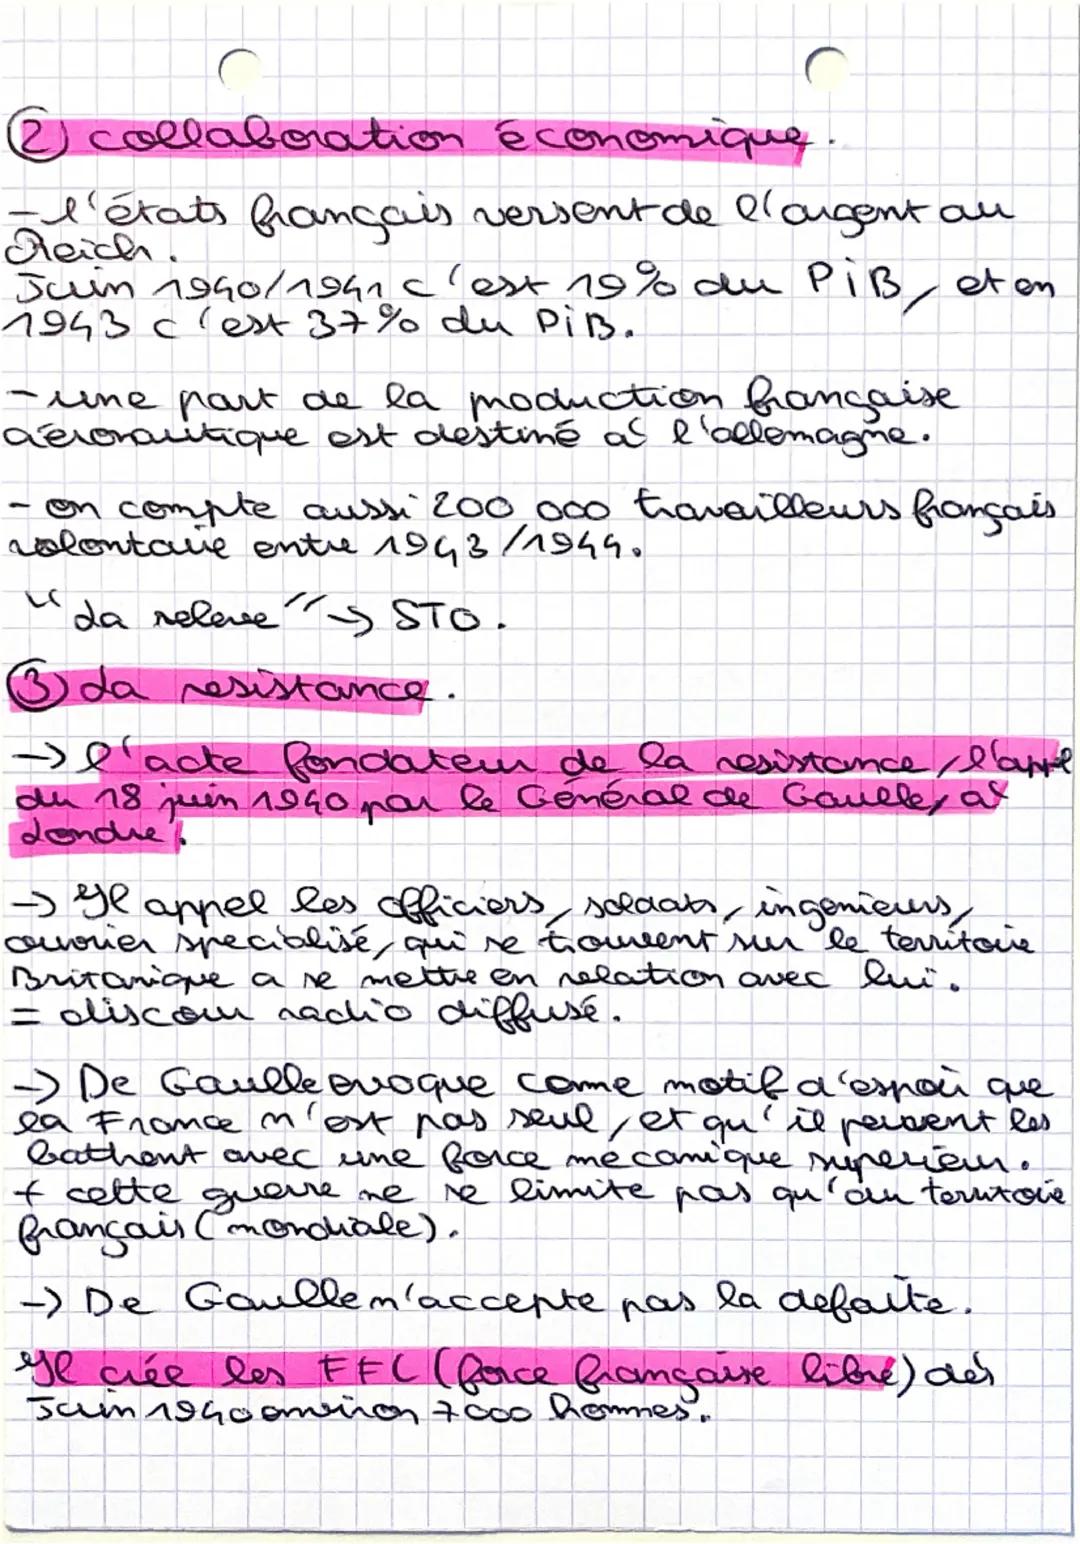 ② collaboration économique.
- l'états français versent de l'argent au
Reich.
Juin 1940/1941 c'est 19% du PiB, et en
1943 c'est 37% du PiB.
- une part de la production française
aéronautique est destiné à l'allemagne.
- on compte aussi 200 000 travailleurs français
volontaire entre 1943/1944.
"La releve" → STO.
③ La resistance.
→ l'acte fondateur de la resistance, l'appel
du 18 juin 1940 par le Général de Gaulle, à
Londre.
→ Il appel les officiers, soldats, ingenieurs,
ouvrier specialisé, qui se trouvent sur le territoire
Britanique a se mettre en relation avec lui.
= discour radio diffusé.
→ De Gaulle evoque come motif d'espoir que
la France n'est pas seul, et qu'il peuvent les
batthent avec une force mécanique superieur.
+ cette guerre ne se limite pas qu'au territoire
français (mondiale).
→ De Gaulle n'accepte pas la defaite.
Il crée les FFL (force française libre) dès
Juin 1940 environ 7000 hommes.